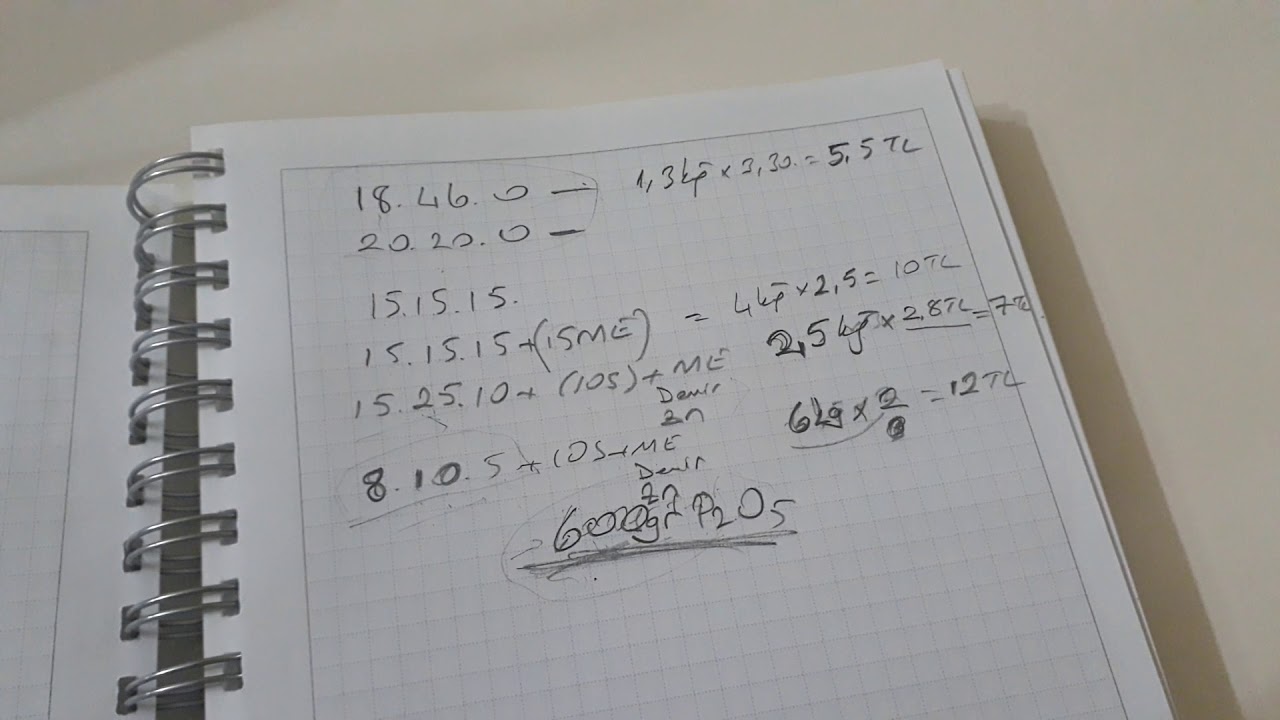 18.46.0 — 1,3kg x 3,30. = 5,5 TL
20.20.0 —
15.15.15.
15.15.15+(15ME) = 4kg x 2,5 = 10TL
15.25.10+ (10S)+ME 2,5kg x 2,8TL = 7TL
Demir
Zn
8.10.5+10S+ME 6kg x 2 = 12TL
Demir
Zn
600gr P2O5